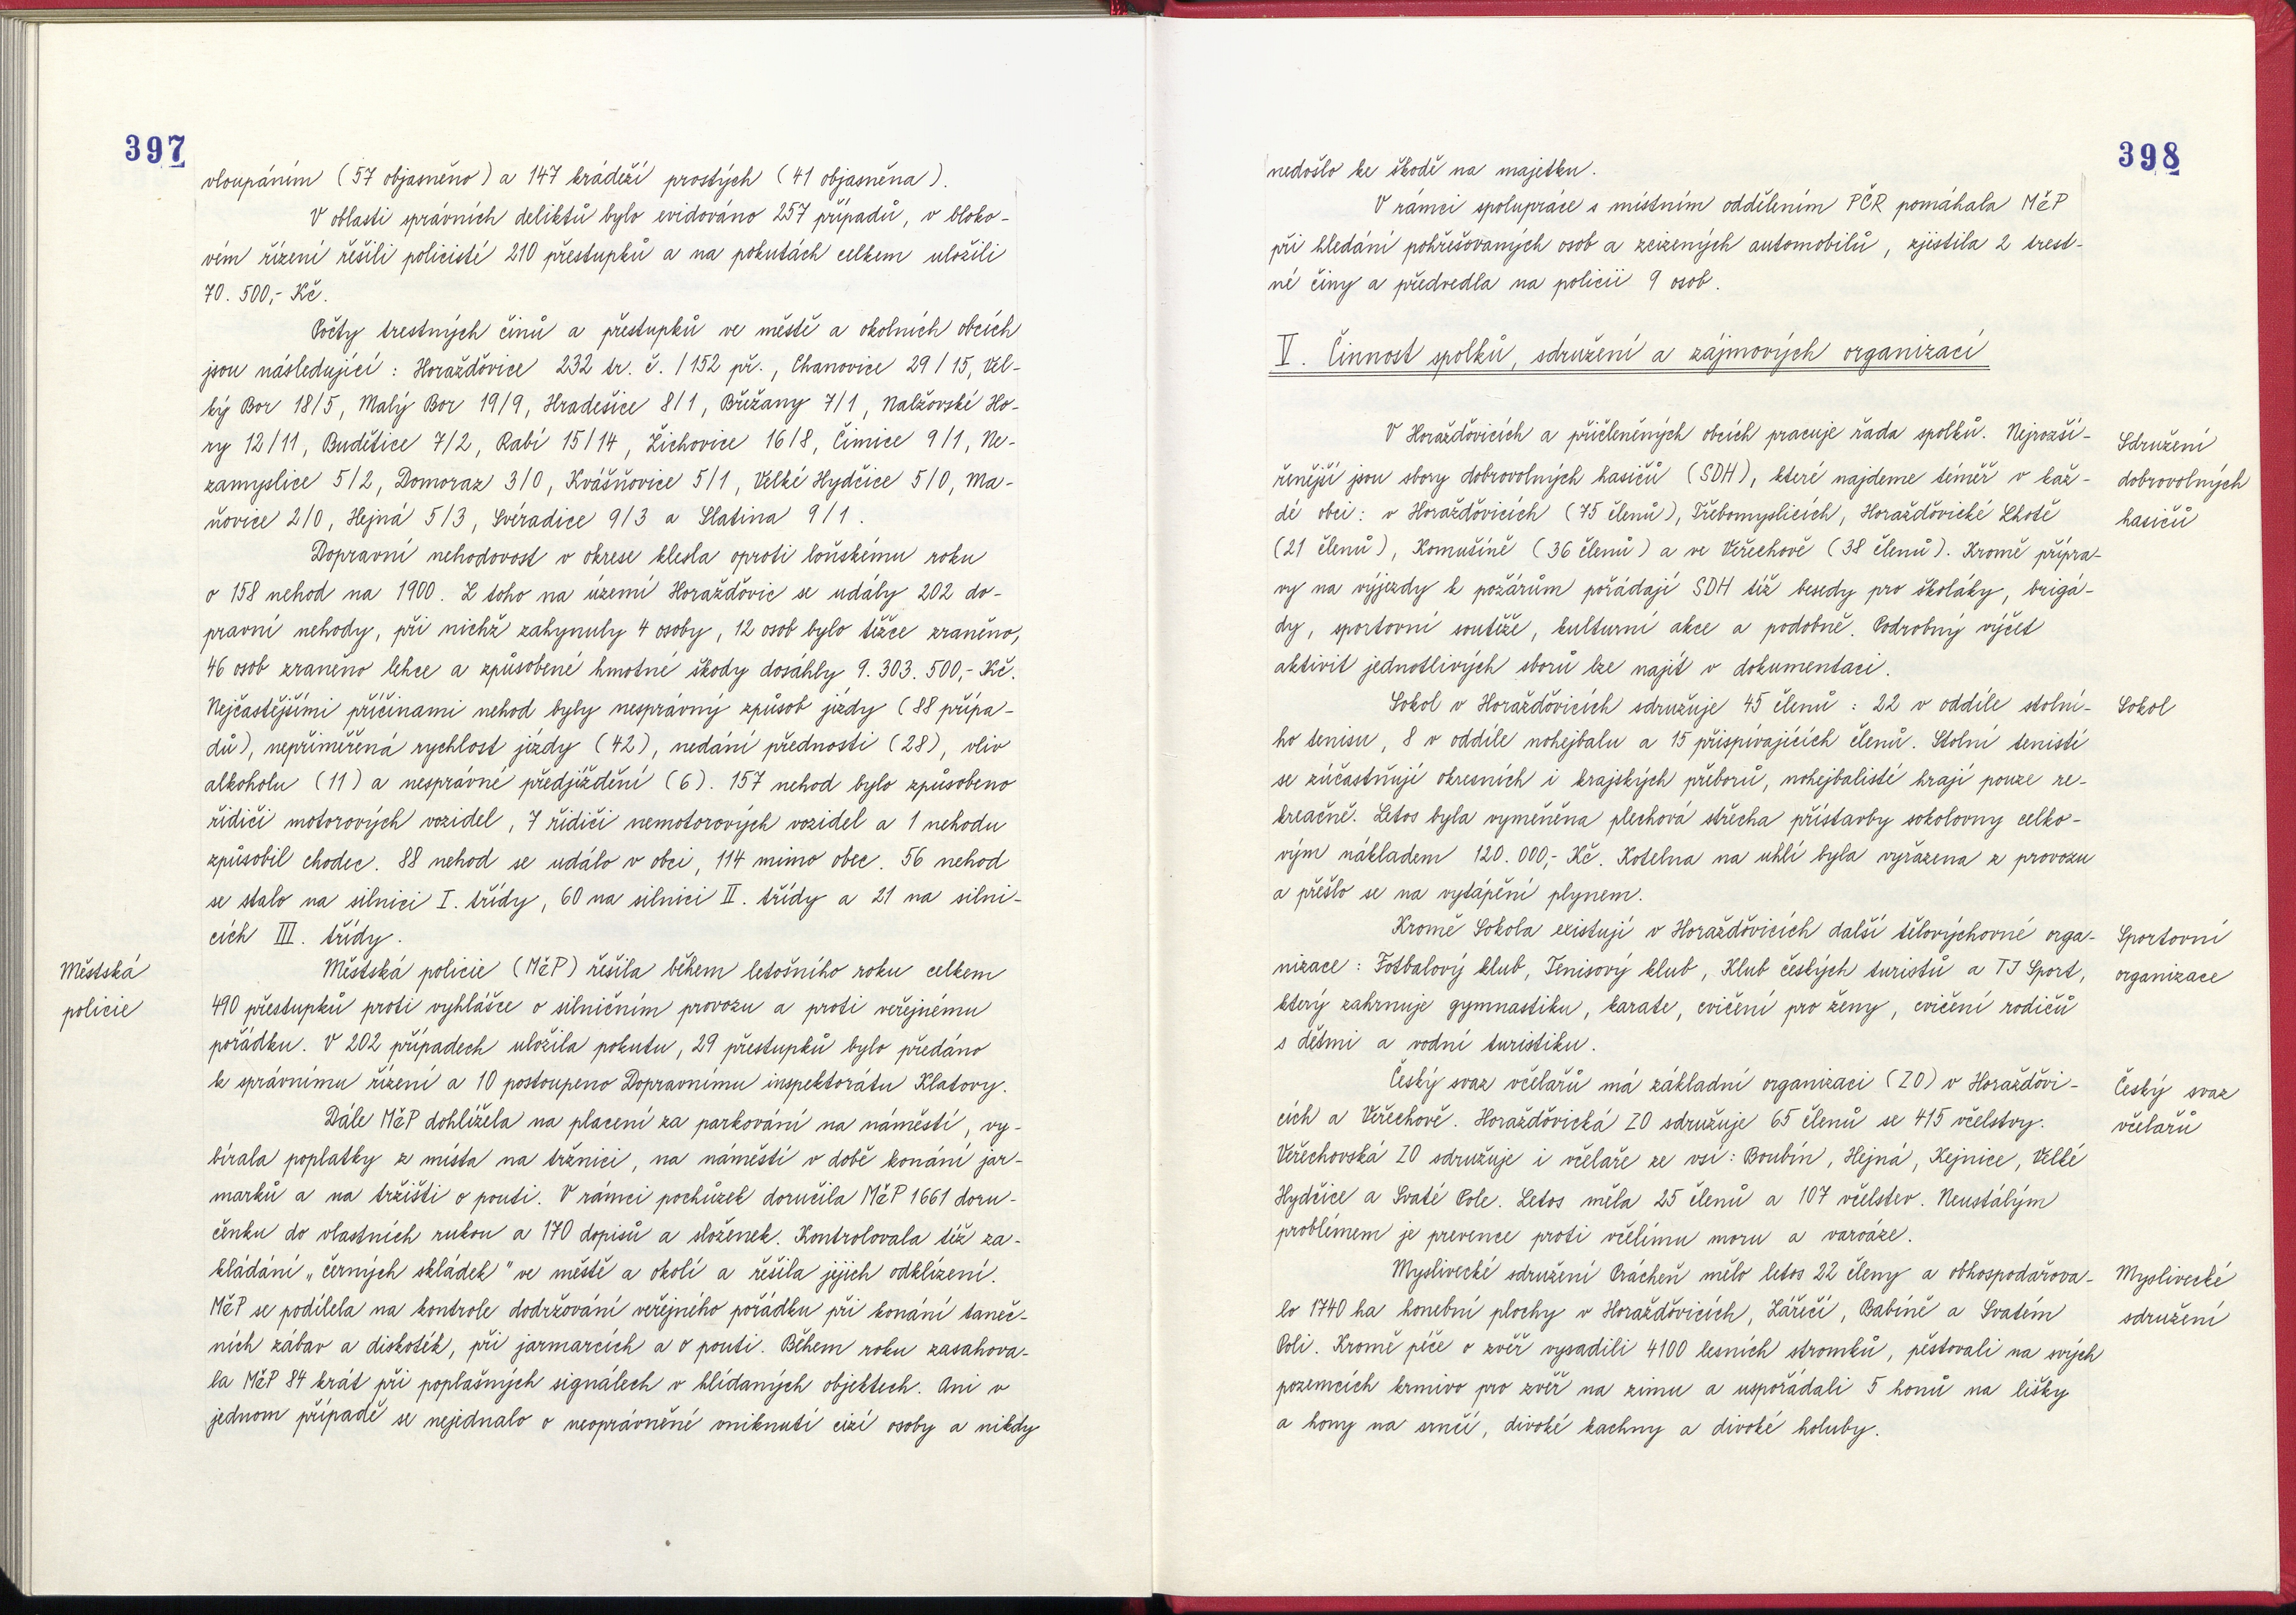 397
vloupáním (57 objasněno) a 147 krádeží prostých (41 objasněna).
V oblasti správních deliktů bylo evidováno 257 případů, v bloko-
vém řízení řešili policisté 210 přestupků a na pokutách celkem uložili
70.500,- Kč.
Počty trestných činů a přestupků ve městě a okolních obcích
jsou následující: Horažďovice 232 tr. č. / 152 př., Chanovice 29/15, Vel-
ký Bor 18/5, Malý Bor 19/9, Hradešice 8/1, Břežany 7/1, Nalžovské Ho-
ry 12/11, Budětice 7/2, Rabí 15/14, Žichovice 16/8, Čimice 9/1, Ne-
zamyslice 5/2, Domoraz 3/0, Kvášňovice 5/1, Velké Hydčice 5/0, Ma-
ňovice 2/0, Hejná 5/3, Svéradice 9/3 a Slatina 9/1.
Dopravní nehodovost v okrese klesla oproti loňskému roku
o 158 nehod na 1900. Z toho na území Horažďovic se udály 202 do-
pravní nehody, při nichž zahynuly 4 osoby, 12 osob bylo těžce zraněno,
46 osob zraněno lehce a způsobené hmotné škody dosáhly 9.303.500,- Kč.
Nejčastějšími příčinami nehod byly nesprávný způsob jízdy (88 přípa-
dů), nepřiměřená rychlost jízdy (42), nedání přednosti (28), vliv
alkoholu (11) a nesprávné předjíždění (6). 157 nehod bylo způsobeno
řidiči motorových vozidel, 7 řidiči nemotorových vozidel a 1 nehodu
způsobil chodec. 88 nehod se událo v obci, 114 mimo obec. 56 nehod
se stalo na silnici I. třídy, 60 na silnici II. třídy a 21 na silni-
cích III. třídy.
Městská
policie
Městská policie (MěP) řešila během letošního roku celkem
490 přestupků proti vyhlášce o silničním provozu a proti veřejnému
pořádku. V 202 případech uložila pokutu, 29 přestupků bylo předáno
k správnímu řízení a 10 postoupeno Dopravnímu inspektorátu Klatovy.
Dále MěP dohlížela na placení za parkování na náměstí, vy-
bírala poplatky z místa na tržnici, na náměstí v době konání jar-
marků a na tržišti o pouti. V rámci pochůzek doručila MěP 1661 doru-
čenku do vlastních rukou a 170 dopisů a složenek. Kontrolovala též za-
kládání „černých skládek" ve městě a okolí a řešila jejich odklízení.
MěP se podílela na kontrole dodržování veřejného pořádku při konání taneč-
ních zábav a diskoték, při jarmarcích a o pouti. Během roku zasahova-
la MěP 84 krát při poplašných signálech v hlídaných objektech. Ani v
jednom případě se nejednalo o neoprávněné vniknutí cizí osoby a nikdy
398
nedošlo ke škodě na majetku.
V rámci spolupráce s místním oddělením PČR pomáhala MěP
při hledání pohřešovaných osob a zcizených automobilů, zjistila 2 trest-
né činy a předvedla na policii 9 osob.
V. Činnost spolků, sdružení a zájmových organizací
Sdružení
dobrovolných
hasičů
V Horažďovicích a přičleněných obcích pracuje řada spolků. Nejrozší-
řenější jsou sbory dobrovolných hasičů (SDH), které najdeme téměř v kaž-
dé obci: v Horažďovicích (75 členů), Třebomyslicích, Horažďovické Lhotě
(21 členů), Komušíně (36 členů) a ve Veřechově (38 členů). Kromě přípra-
vy na výjezdy k požárům pořádají SDH též besedy pro školáky, brigá-
dy, sportovní soutěže, kulturní akce a podobně. Podrobný výčet
aktivit jednotlivých sborů lze najít v dokumentaci.
Sokol
Sokol v Horažďovicích sdružuje 45 členů: 22 v oddíle stolní-
ho tenisu, 8 v oddíle nohejbalu a 15 přispívajících členů. Stolní tenisté
se zúčastňují okresních i krajských přeborů, nohejbalisté hrají pouze re-
kreačně. Letos byla vyměněna plechová střecha přístavby sokolovny celko-
vým nákladem 120.000,- Kč. Kotelna na uhlí byla vyřazena z provozu
a přešlo se na vytápění plynem.
Sportovní
organizace
Kromě Sokola existují v Horažďovicích další tělovýchovné orga-
nizace: Fotbalový klub, Tenisový klub, Klub českých turistů a TJ Sport,
který zahrnuje gymnastiku, karate, cvičení pro ženy, cvičení rodičů
s dětmi a vodní turistiku.
Český svaz
včelařů
Český svaz včelařů má základní organizaci (ZO) v Horažďovi-
cích a Veřechově. Horažďovická ZO sdružuje 65 členů se 415 včelstvy.
Veřechovská ZO sdružuje i včelaře ze vsí: Boubín, Hejná, Kejnice, Velké
Hydčice a Svaté Pole. Letos měla 25 členů a 107 včelstev. Neustálým
problémem je prevence proti včelímu moru a varoáze.
Myslivecké
sdružení
Myslivecké sdružení Prácheň mělo letos 22 členy a obhospodařova-
lo 1740 ha honební plochy v Horažďovicích, Zářečí, Babíně a Svatém
Poli. Kromě péče o zvěř vysadili 4100 lesních stromků, pěstovali na svých
pozemcích krmivo pro zvěř na zimu a uspořádali 5 honů na lišky
a hony na srnčí, divoké kachny a divoké holuby.